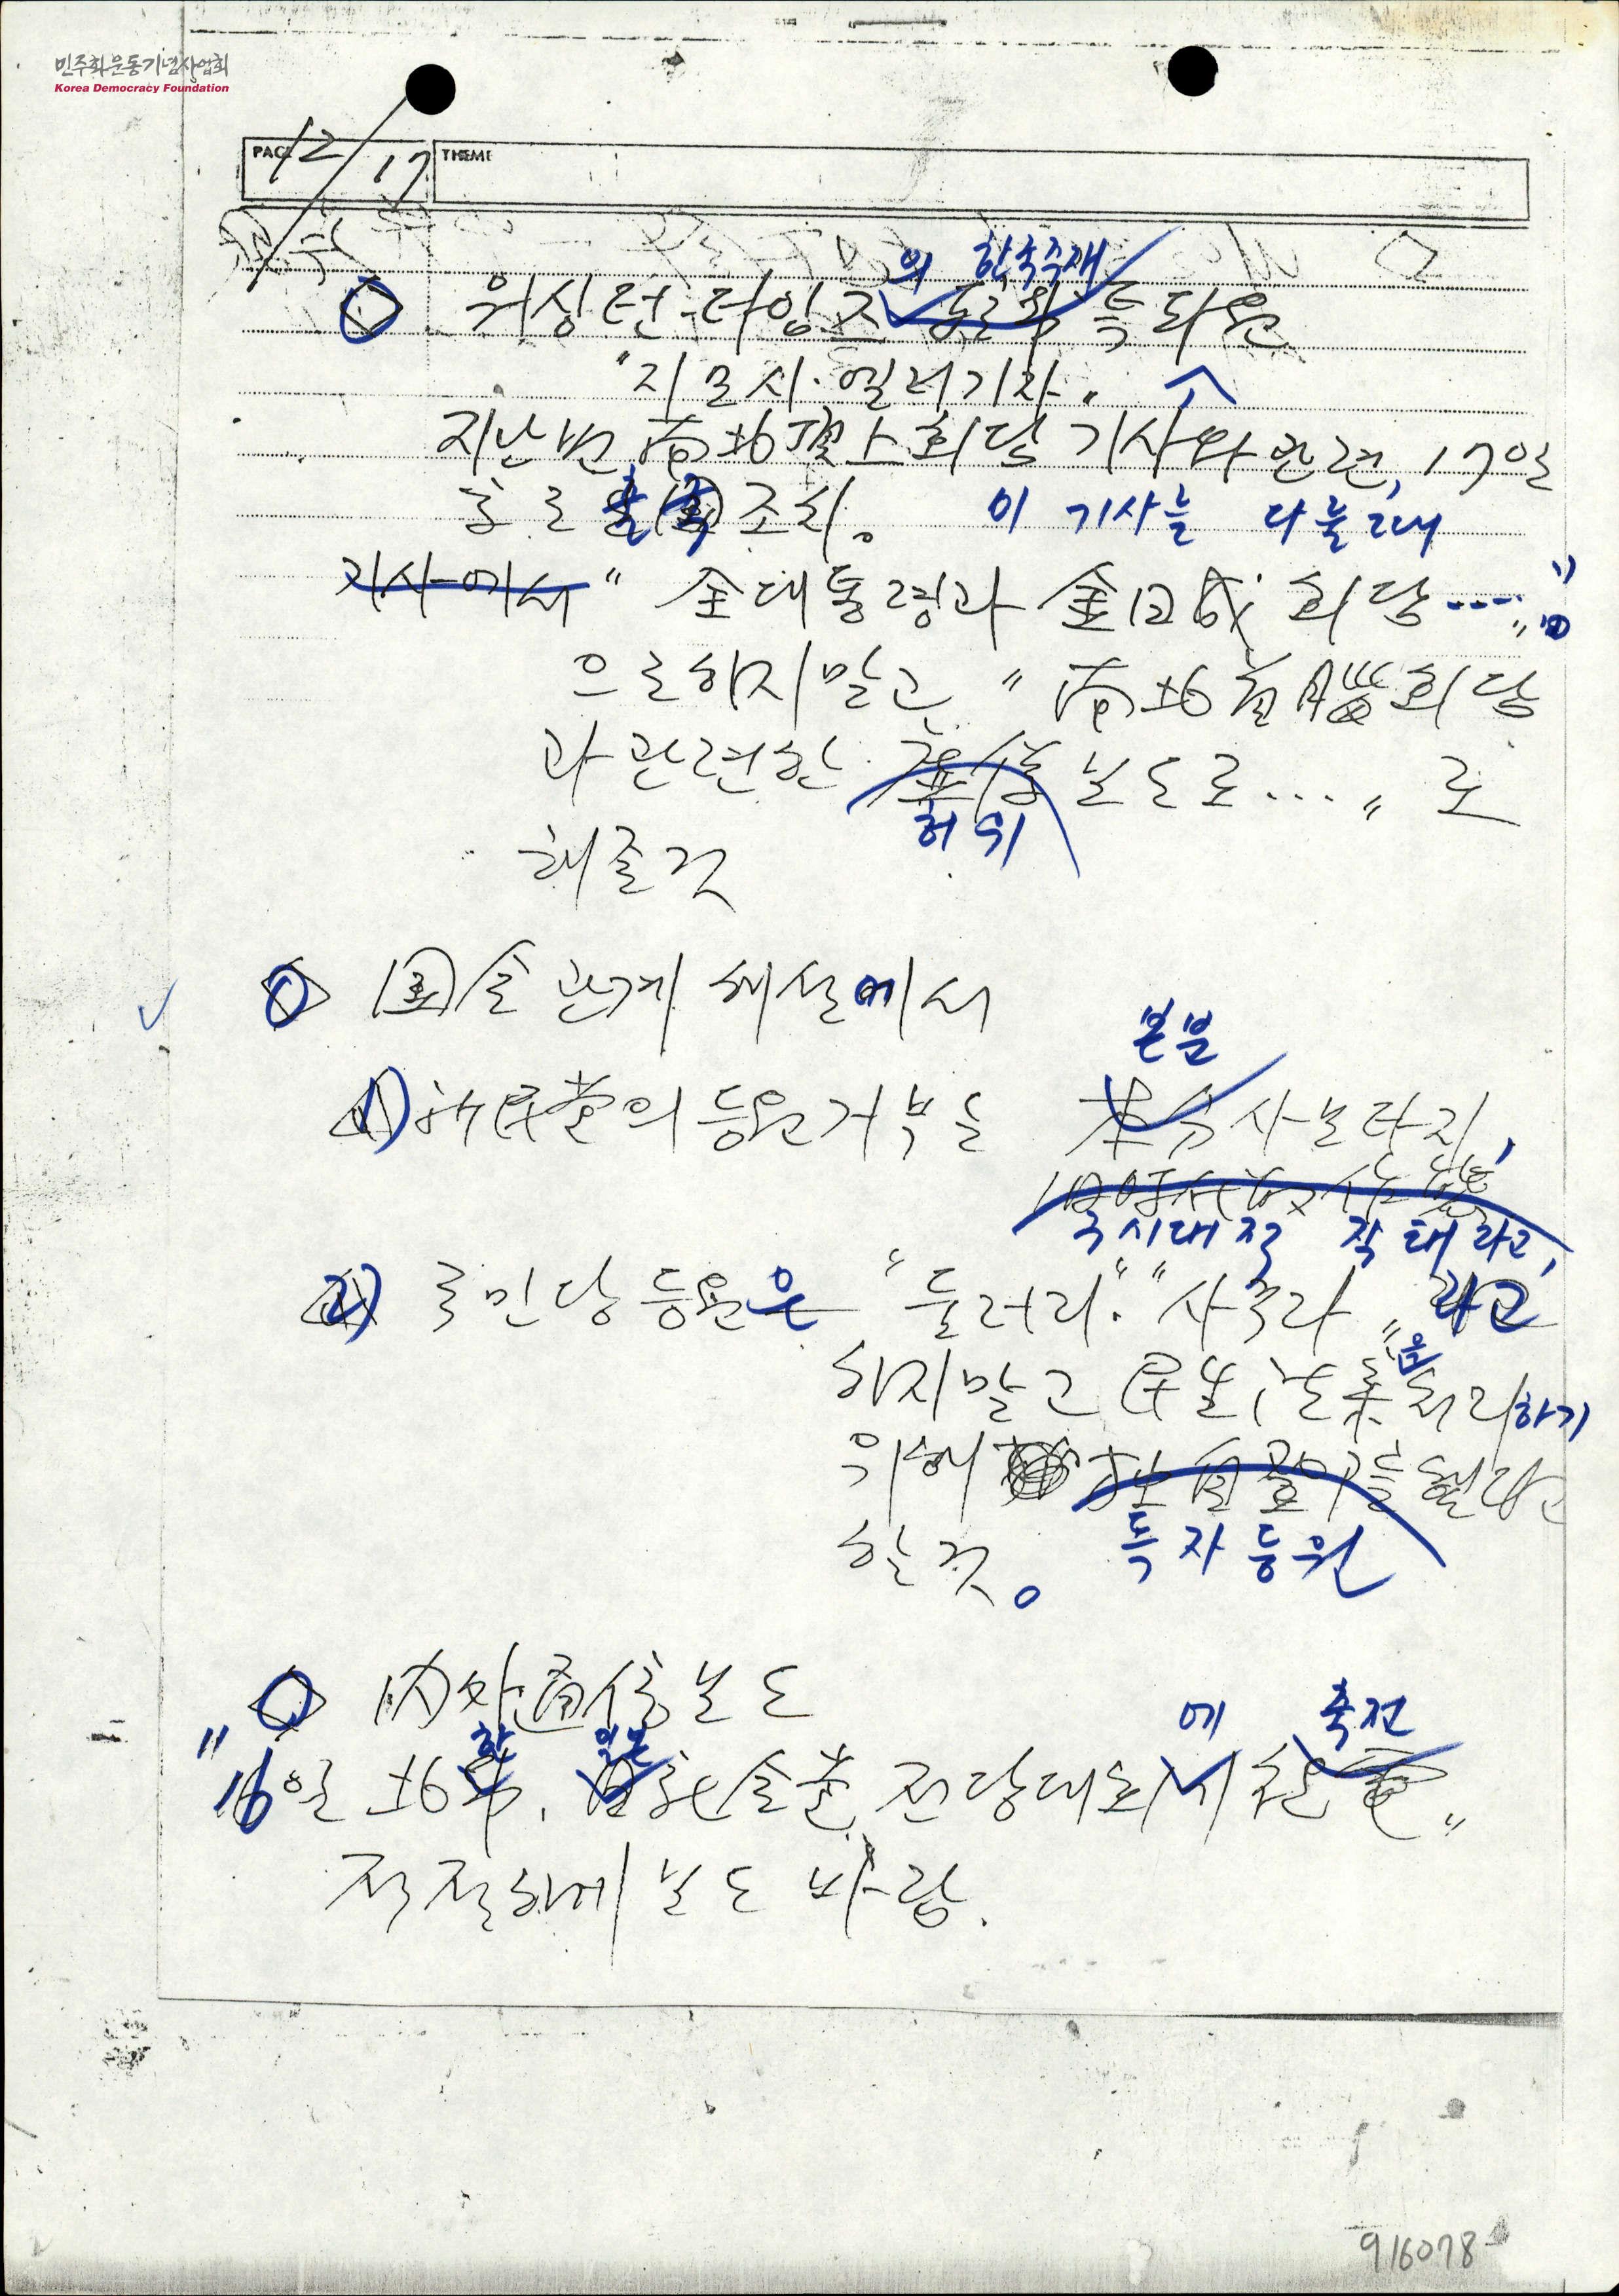 민주화운동기념사업회
Korea Democracy Foundation
PAGE 12 17 THEME
의 한국주재
워싱턴-타임즈 특파원
"지모시·엘러기자"
지난번 南北頂上회담 기사와 관련, 17일
출국 조치。 이 기사를 다룰때
기사에서 " 金대통령과 金日成 회담 ...."
으로하지말고 " 南北首腦회담
과 관련한 보도로..." 로
허위
해줄것
国会관계 해설에서
본분
1) 新民党의 등원거부는 사보타지,
구시대적 작태라고,
2) 국민당 등원은 "들러리" "사쿠라" 라고
은
하지말고 民生法案 처리하기
위해
할것。 독자등원
内外通信보도
한 일본 에 축전
"16일 北 전당대회
적절하게 보도 바람.
916078